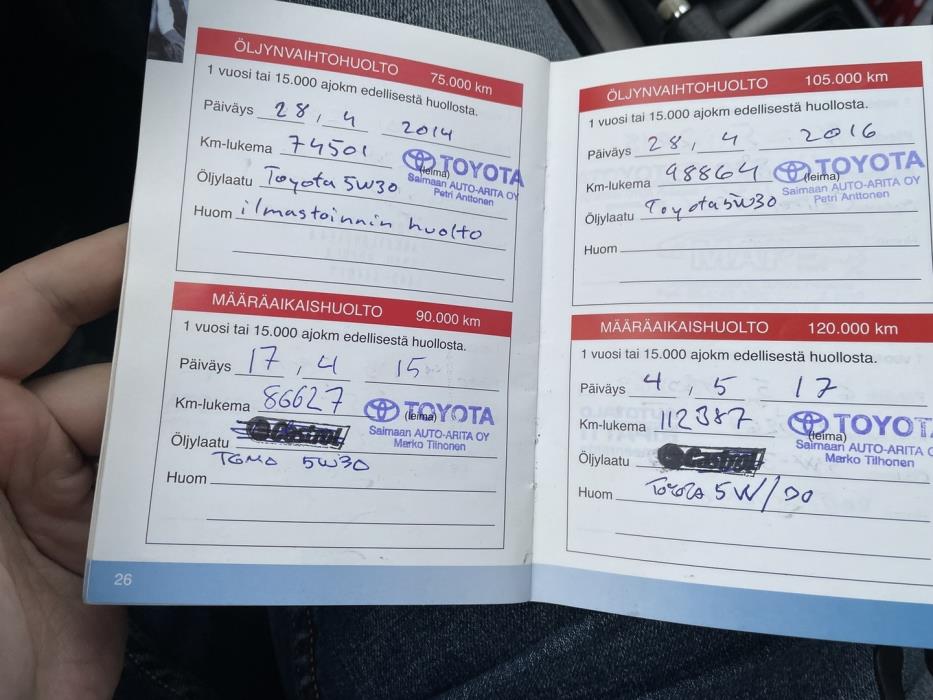 ÖLJYNVAIHTOHUOLTO 75.000 km
1 vuosi tai 15.000 ajokm edellisestä huollosta.
Päiväys 28, 4 2014
Km-lukema 74501
TOYOTA
(leima)
Saimaan AUTO-ARITA OY
Petri Anttonen
Öljylaatu Toyota 5W30
Huom ilmastoinnin huolto
MÄÄRÄAIKAISHUOLTO 90.000 km
1 vuosi tai 15.000 ajokm edellisestä huollosta.
Päiväys 17, 4 15
Km-lukema 86627
TOYOTA
(leima)
Saimaan AUTO-ARITA OY
Marko Tilhonen
Castrol
Öljylaatu
5W30
Huom
26
ÖLJYNVAIHTOHUOLTO 105.000 km
1 vuosi tai 15.000 ajokm edellisestä huollosta.
Päiväys 28, 4 2016
Km-lukema 98864
TOYOTA
(leima)
Saimaan AUTO-ARITA OY
Petri Anttonen
Öljylaatu Toyota 5W30
Huom
MÄÄRÄAIKAISHUOLTO 120.000 km
1 vuosi tai 15.000 ajokm edellisestä huollosta.
Päiväys 4, 5 17
Km-lukema 112387
TOYOT
(leima)
Saimaan AUTO-ARITA O
Marko Tilhonen
Öljylaatu Castrol
Huom Toyota 5W/30